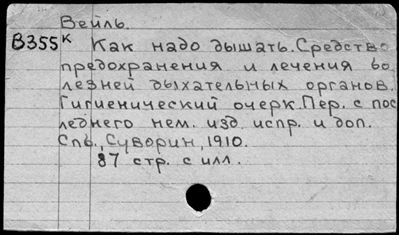 Вейль.
В355 к Как надо дышать. Средство
предохранения и лечения бо
лезней дыхательных органов.
Гигиенический очерк. Пер. с пос
леднего нем. изд. испр. и доп.
Спб., Суворин, 1910.
87 стр. с илл.